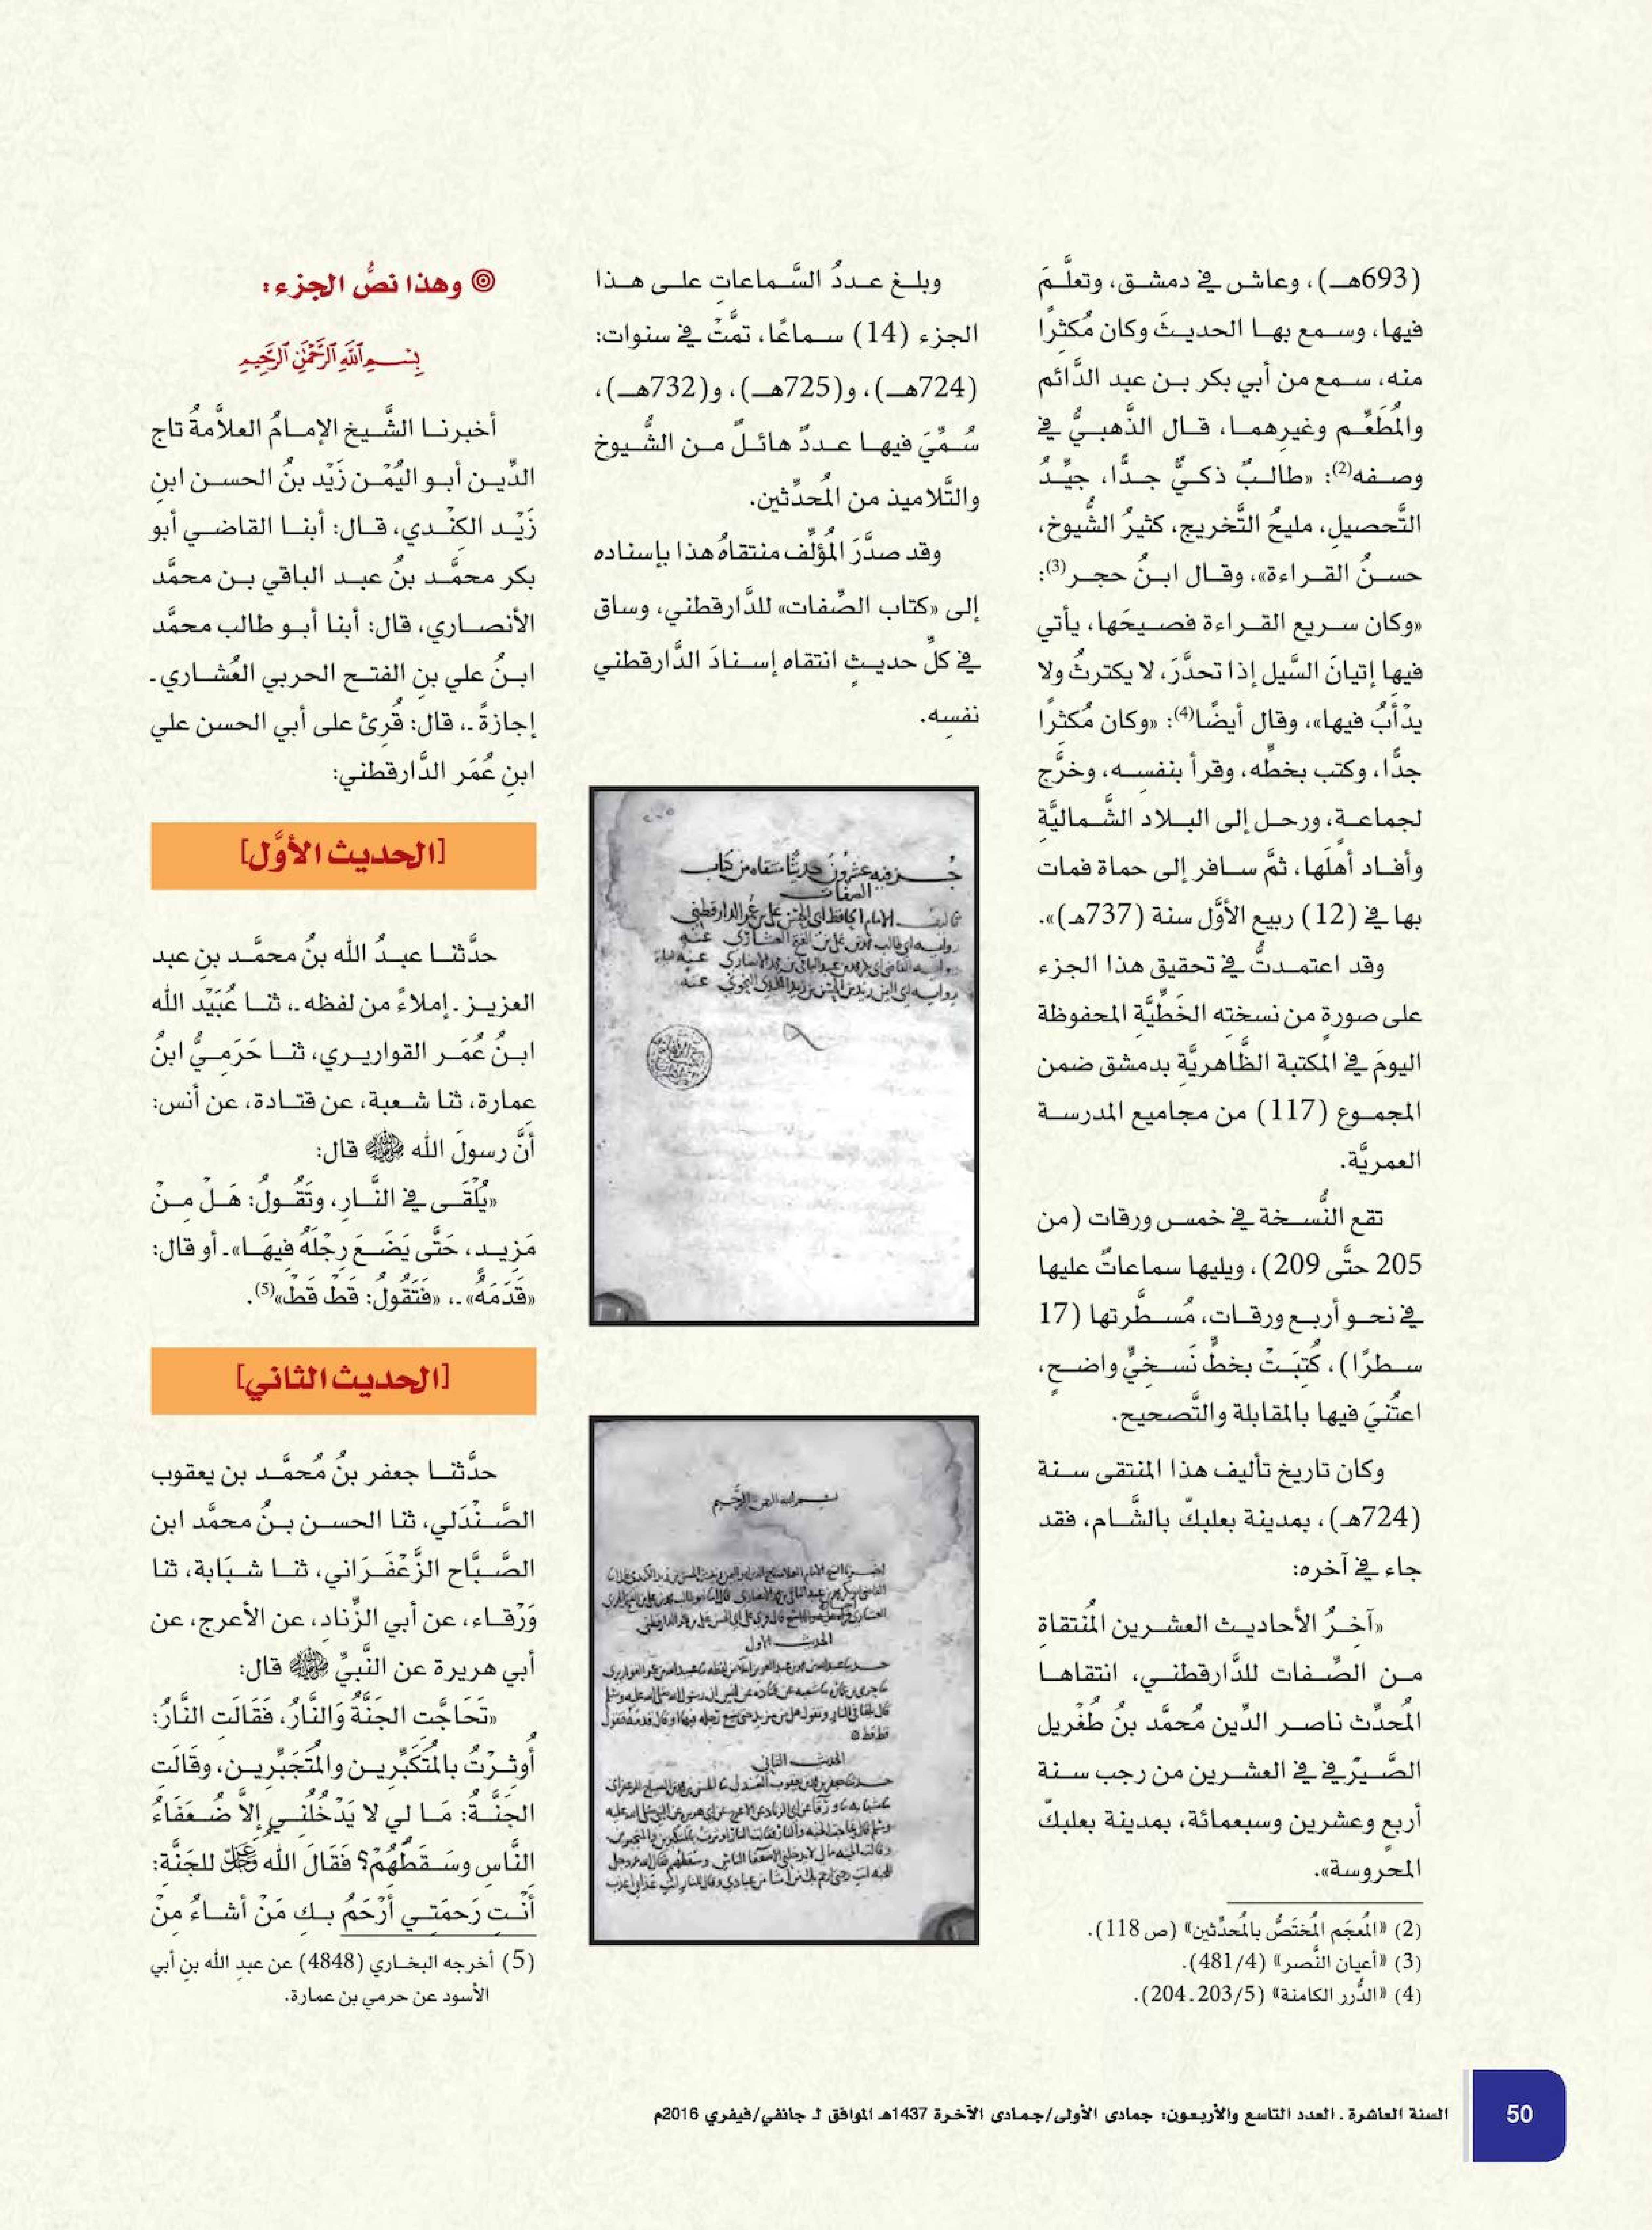 (693هـ)، وعاش في دمشق، وتعلَّمَ
فيها، وسمع بها الحديثَ وكان مُكثرًا
منه، سمع من أبي بكر بن عبد الدَّائم
والمُطَعِّم وغيرهما، قال الذَّهبيُّ في
وصفه(2): «طالبٌ ذكيٌّ جدًّا، جيِّدُ
التَّحصيل، مليحُ التَّخريج، كثيرُ الشُّيوخ،
حسنُ القراءة»، وقال ابنُ حجر(3):
«وكان سريع القراءة فصيحَها، يأتي
فيها إتيانَ السَّيل إذا تحدَّرَ، لا يكترثُ ولا
يدْأَبُ فيها»، وقال أيضًا(4): «وكان مُكثرًا
جدًّا، وكتب بخطِّه، وقرأ بنفسِه، وخرَّج
لجماعةٍ، ورحل إلى البلاد الشَّماليَّة
وأفاد أهلَها، ثمَّ سافر إلى حماة فمات
بها في (12) ربيع الأوَّل سنة (737هـ)».
وقد اعتمدتُّ في تحقيق هذا الجزء
على صورةٍ من نسخته الخَطِّيَّةِ المحفوظة
اليومَ في المكتبة الظَّاهريَّة بدمشق ضمن
المجموع (117) من مجاميع المدرسة
العمريَّة.
تقع النُّسخة في خمس ورقات (من
205 حتَّى 209)، ويليها سماعاتٌ عليها
في نحو أربع ورقات، مُسطَّرتها (17
سطرًا)، كُتبَتْ بخطٍّ نَسخيٍّ واضحٍ،
اعتُنيَ فيها بالمقابلة والتَّصحيح.
وكان تاريخ تأليف هذا المنتقى سنة
(724هـ)، بمدينة بعلبكّ بالشَّام، فقد
جاء في آخره:
«آخرُ الأحاديث العشرين المُنتقاةِ
من الصِّفات للدَّارقطني، انتقاها
المُحدِّث ناصر الدِّين مُحمَّد بنُ طُغْريل
الصَّيرْفي في العشرين من رجب سنة
أربع وعشرين وسبعمائة، بمدينة بعلبكّ
المحروسة».
(2) «المُعجَم المُختَصُّ بالمُحدِّثين» (ص 118).
(3) «أعيان النَّصر» (481/4).
(4) «الدُّرر الكامنة» (203/5 ـ 204).
وبلغ عددُ السَّماعات على هذا
الجزء (14) سماعًا، تمَّتْ في سنوات:
(724هـ)، و(725هـ)، و(732هـ)،
سُمِّيَ فيها عددٌ هائلٌ من الشُّيوخ
والتَّلاميذ من المُحدِّثين.
وقد صدَّرَ المُؤلِّف منتقاهُ هذا بإسناده
إلى «كتاب الصِّفات» للدَّارقطني، وساق
في كلِّ حديثٍ انتقاه إسنادَ الدَّارقطني
نفسِه.
جزء فيه عشرون حديثًا منتقاه من كتاب
الصفات
تأليف الإمام الحافظ أبي الحسن علي بن عمر الدارقطني
بسم الله الرحمن الرحيم
الحديث الأول
الحديث الثاني
◎ وهذا نصُّ الجزء:
بِسْمِ اللَّهِ الرَّحْمَٰنِ الرَّحِيمِ
أخبرنا الشَّيخ الإمامُ العلاَّمةُ تاج
الدِّين أبو اليُمْن زَيْد بنُ الحسن ابنِ
زَيْد الكنْدي، قال: أبنا القاضي أبو
بكر محمَّد بنُ عبد الباقي بن محمَّد
الأنصاري، قال: أبنا أبو طالب محمَّد
ابنُ علي بنِ الفتح الحربي العُشاري ـ
إجازةً ـ، قال: قُرئ على أبي الحسن علي
ابنِ عُمَر الدَّارقطني:
[الحديث الأوَّل]
حدَّثنا عبدُ الله بنُ محمَّد بنِ عبد
العزيز ـ إملاءً من لفظه ـ، ثنا عُبَيْد الله
ابنُ عُمَر القواريري، ثنا حَرَميُّ ابنُ
عمارة، ثنا شعبة، عن قتادة، عن أنس:
أنَّ رسولَ الله ﷺ قال:
«يُلْقَى في النَّارِ، وتَقُولُ: هَلْ منْ
مَزيدٍ، حَتَّى يَضَعَ رِجْلَهُ فيهَا» ـ أو قال:
«قَدَمَهُ» ـ، «فَتَقُولُ: قَطْ قَطْ»(5).
[الحديث الثاني]
حدَّثنا جعفر بنُ مُحمَّد بن يعقوب
الصَّنْدَلي، ثنا الحسن بنُ محمَّد ابن
الصَّبَّاح الزَّعْفَرَاني، ثنا شبَابة، ثنا
وَرْقاء، عن أبي الزِّناد، عن الأعرج، عن
أبي هريرة عن النَّبيِّ ﷺ قال:
«تَحَاجَّتِ الجَنَّةُ وَالنَّارُ، فَقَالَت النَّارُ:
أُوثرْتُ بالمُتَكَبِّرين والمُتَجَبِّرين، وقَالَت
الجَنَّةُ: مَا لي لا يَدْخُلُني إلاَّ ضُعَفَاءُ
النَّاسِ وسَقطُهُمْ؟ فقَالَ الله عَزَّ وَجَلَّ للجَنَّة:
أَنْت رَحمَتي أَرْحَمُ بك مَنْ أشاءُ منْ
(5) أخرجه البخاري (4848) عن عبد الله بن أبي
الأسود عن حرمي بن عمارة.
السنة العاشرة ـ العدد التاسع والأربعون: جمادى الأولى/جمادى الآخرة 1437هـ الموافق لـ جانفي/فيفري 2016م
50